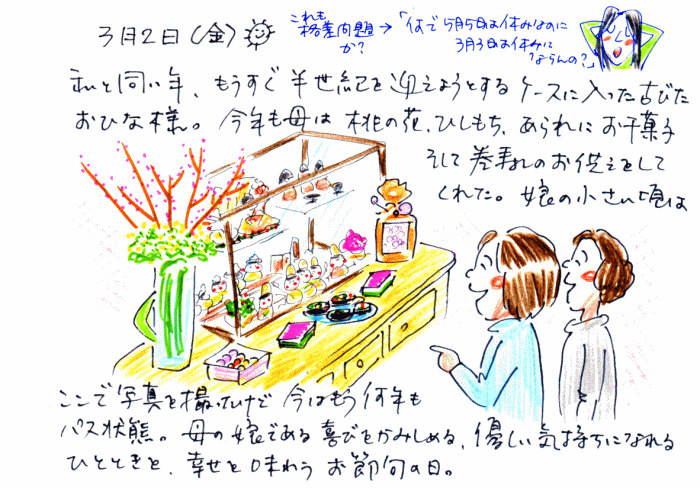 3月2日(金)
これも
格差問題
か?
→「何で5月5日は休みなのに
3月3日は休みに
ならんの?」
私と同い年、もうすぐ半世紀を迎えようとするケースに入った古びた
おひな様。今年も母は桃の花、ひしもち、あられにお干菓子
そして巻寿しのお供えをして
くれた。娘の小さい頃は
ここで写真を撮ったけど今はもう何年も
パス状態。母の娘である喜びをかみしめる、優しい気持ちになれる
ひとときと、幸せを味わうお節句の日。